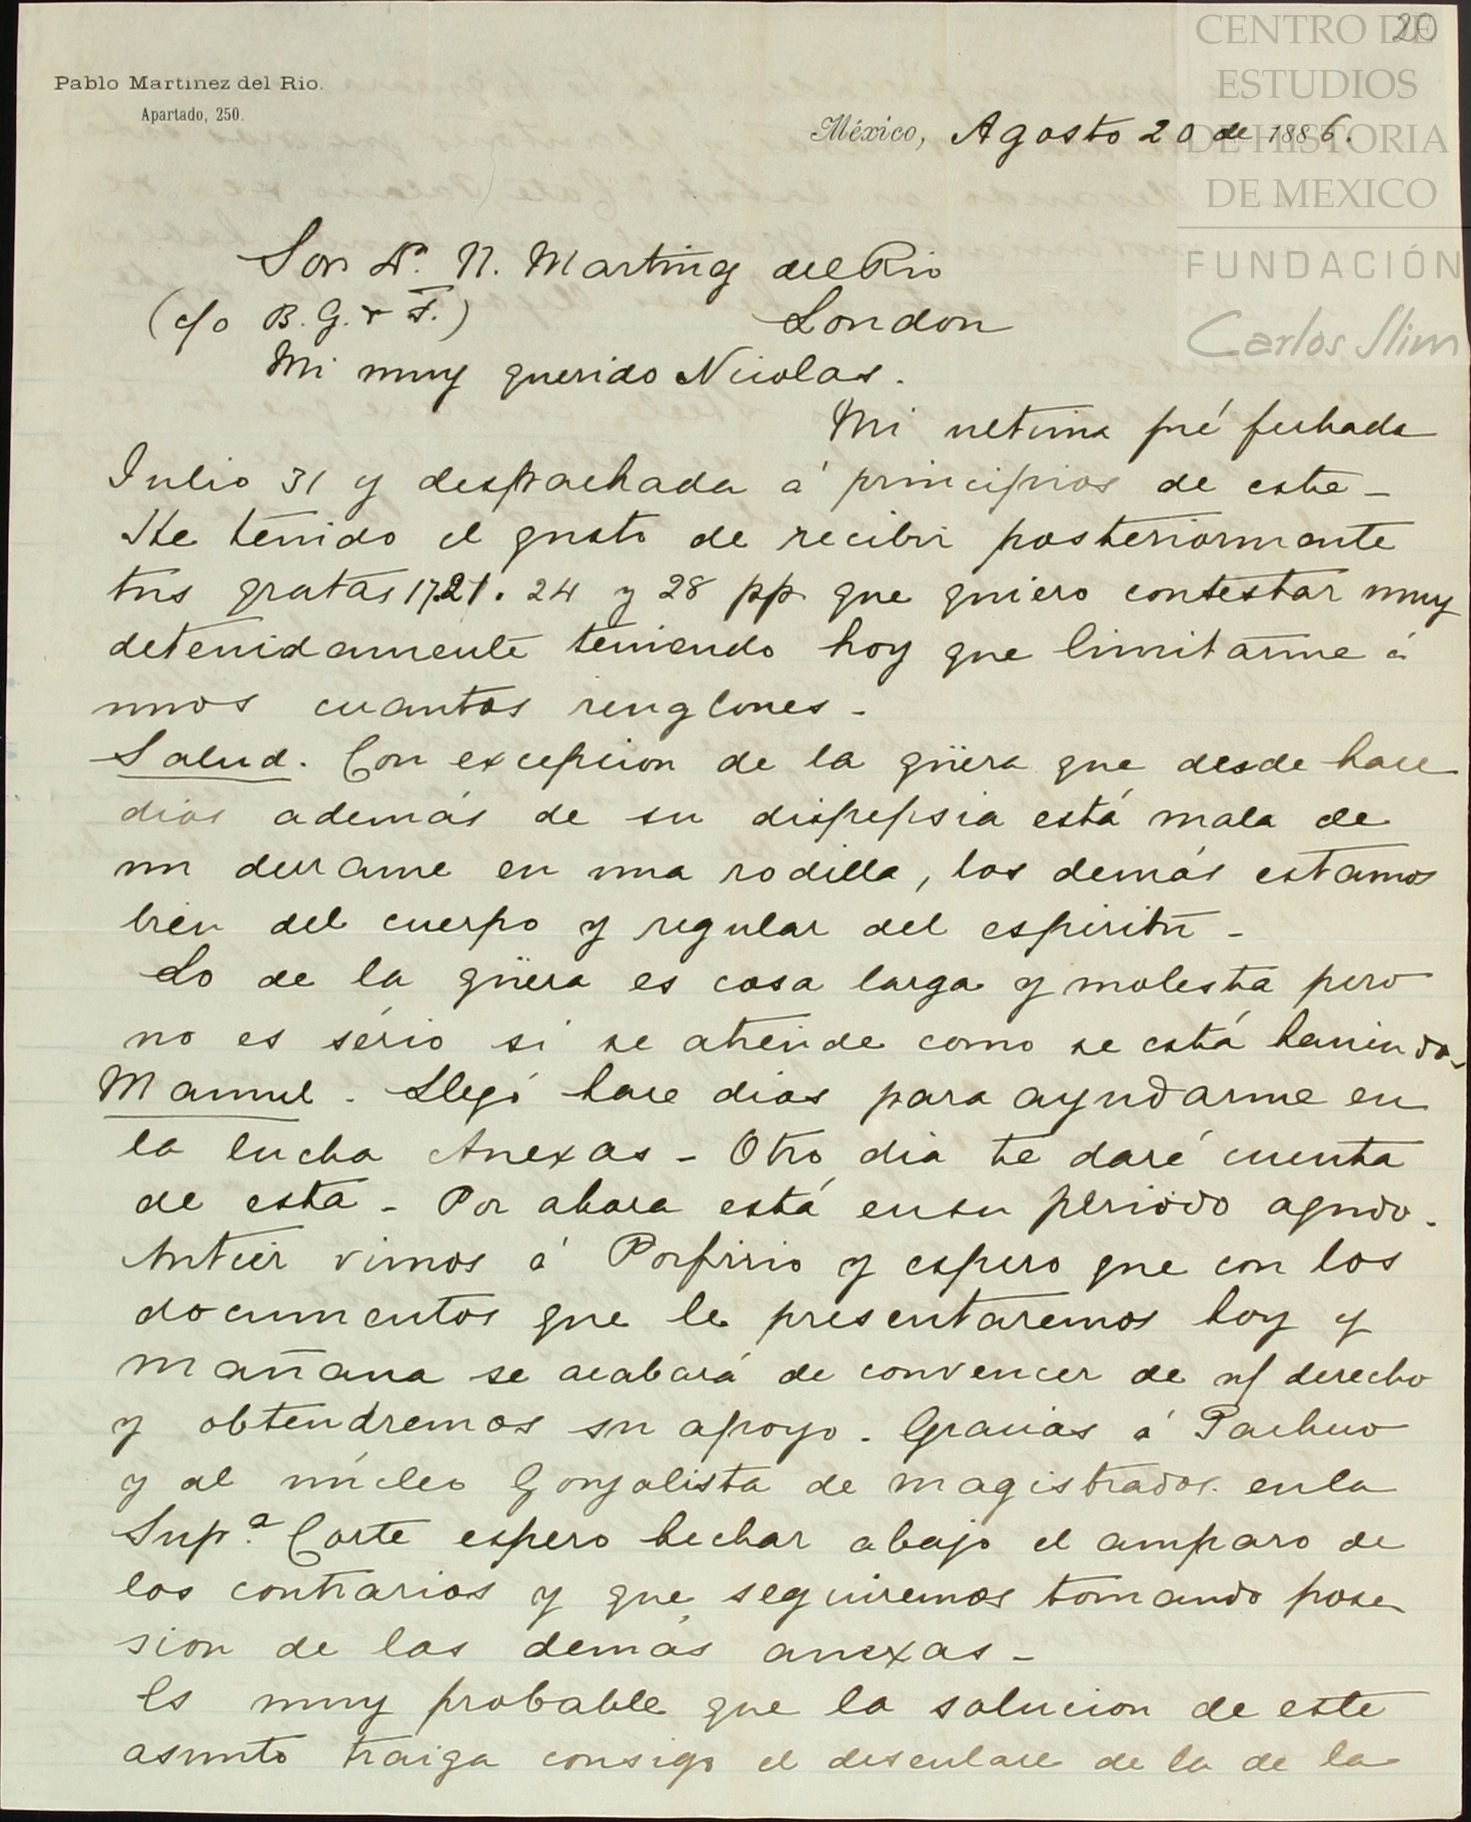 20
CENTRO DE
ESTUDIOS
DE HISTORIA
DE MEXICO
FUNDACIÓN
Carlos Slim
Pablo Martínez del Rio.
Apartado, 250.
México, Agosto 20 de 1886.
Sor Dn. N. Martinez del Rio
(c/o B. G. & F.) London
Mi muy querido Nicolas.
Mi ultima fué fechada
Julio 31 y despachada á principios de este _
He tenido el gusto de recibir posteriormente
tus gratas 17.21. 24 y 28 pp. que quiero contestar muy
detenidamente teniendo hoy que limitarme á
unos cuantos renglones _
Salud. Con excepcion de la güera que desde hace
dias además de su dispepsia está mala de
un derrame en una rodilla, los demás estamos
bien del cuerpo y regular del espiritu _
Lo de la güera es cosa larga y molesta pero
no es sério si se atiende como se está haciendo _
Manuel. Llegó hace dias para ayudarme en
la lucha Anexas _ Otro dia te daré cuenta
de esta _ Por ahora está en su periodo agudo.
Antier vimos á Porfirio y espero que con los
documentos que le presentaremos hoy y
mañana se acabará de convencer de n/ derecho
y obtendremos su apoyo. Gracias á Pacheco
y al núcleo Gonzalista de magistrados en la
Supa. Corte espero hechar abajo el amparo de
los contrarios y que seguiremos tomando pose
sion de las demás anexas _
Es muy probable que la solucion de este
asunto traiga consigo el desenlace de la de la